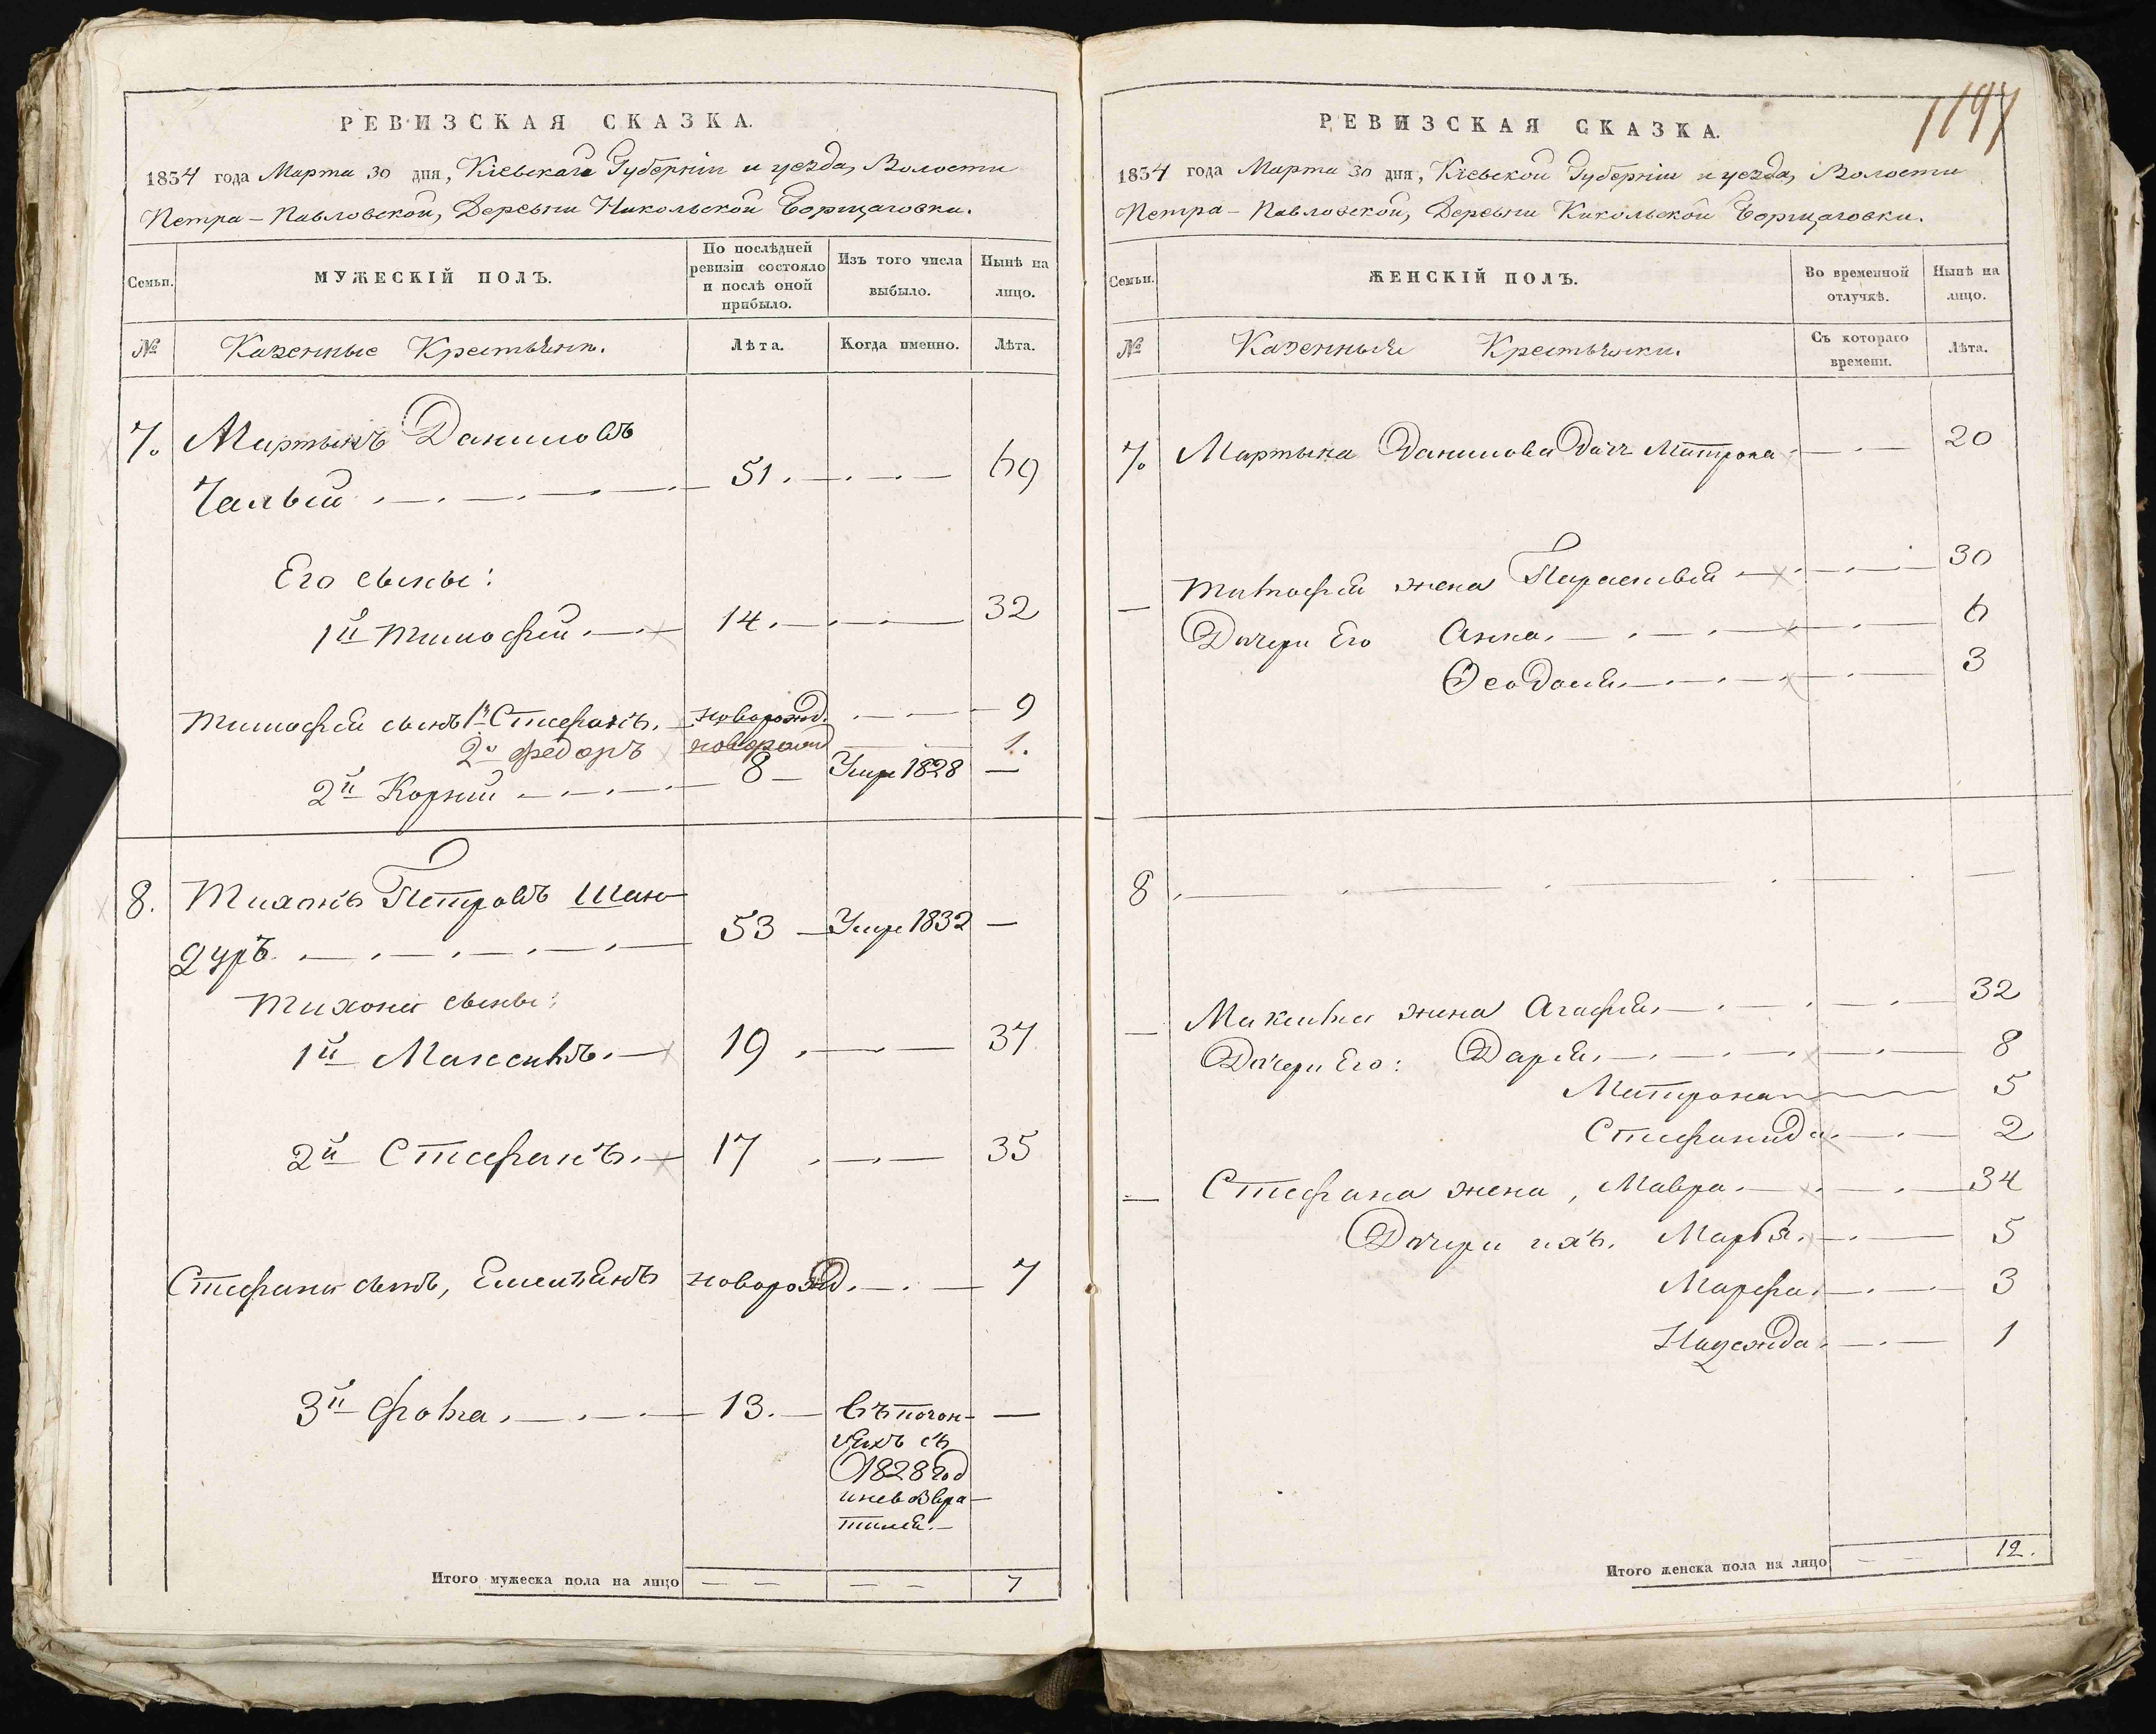 РЕВИЗСКАЯ СКАЗКА.
1834 года Марта 30 дня, Кіевскага Губерніи и уезда, Волости
Петра-Павловской, Деревни Никольской Борщаговки.
Семьи.
МУЖЕСКІЙ ПОЛЪ.
По послѣдней ревизіи состояло и послѣ оной прибыло.
Изъ того числа выбыло.
Нынѣ на лицо.
№
Казенные Крестьяни.
Лѣта.
Когда именно.
Лѣта.
7. Мартынъ Даниловъ
Чалый 51. 69
Его сыны:
1й Тимофей 14. 32
Тимофея сынъ 1й Стефанъ. новорожд. 9
2й Федоръ новорожд 1.
2й Корний 8 Умре 1828 —
8. Тихонъ Петровъ Шан-
дуръ 53 Умре 1832 —
Тихона сыны:
1й Максимъ. 19 37
2й Стефанъ. 17 35
Стефана сынъ, Емельянъ новорожд. 7
3й Фома 13. въ погон-
щ­ики съ
1828 год
и не возвра-
тился. —
Итого мужеска пола на лицо — — — — 7
1197
РЕВИЗСКАЯ СКАЗКА.
1834 года Марта 30 дня, Кіевской Губерніи и уезда, Волости
Петра-Павловской, Деревни Никольской Борщаговки.
Семьи.
ЖЕНСКІЙ ПОЛЪ.
Во временной отлучкѣ.
Нынѣ на лицо.
№
Казенныя Крестьянки.
Съ котораго времени.
Лѣта.
7. Мартына Данилова Дочь Матрона 20
— Тимофея жена Параскивия 30
Дочери Его Анна. 6
Феодосия 3
8
— Максима жена Агафия. 32
Дочери Его: Дария. 8
Матрона 5
Стефанида. 2
— Стефана жена, Мавра. 34
Дочери ихъ. Марья. 5
Марфа. 3
Надежда. 1
Итого женска пола на лицо — — 12.